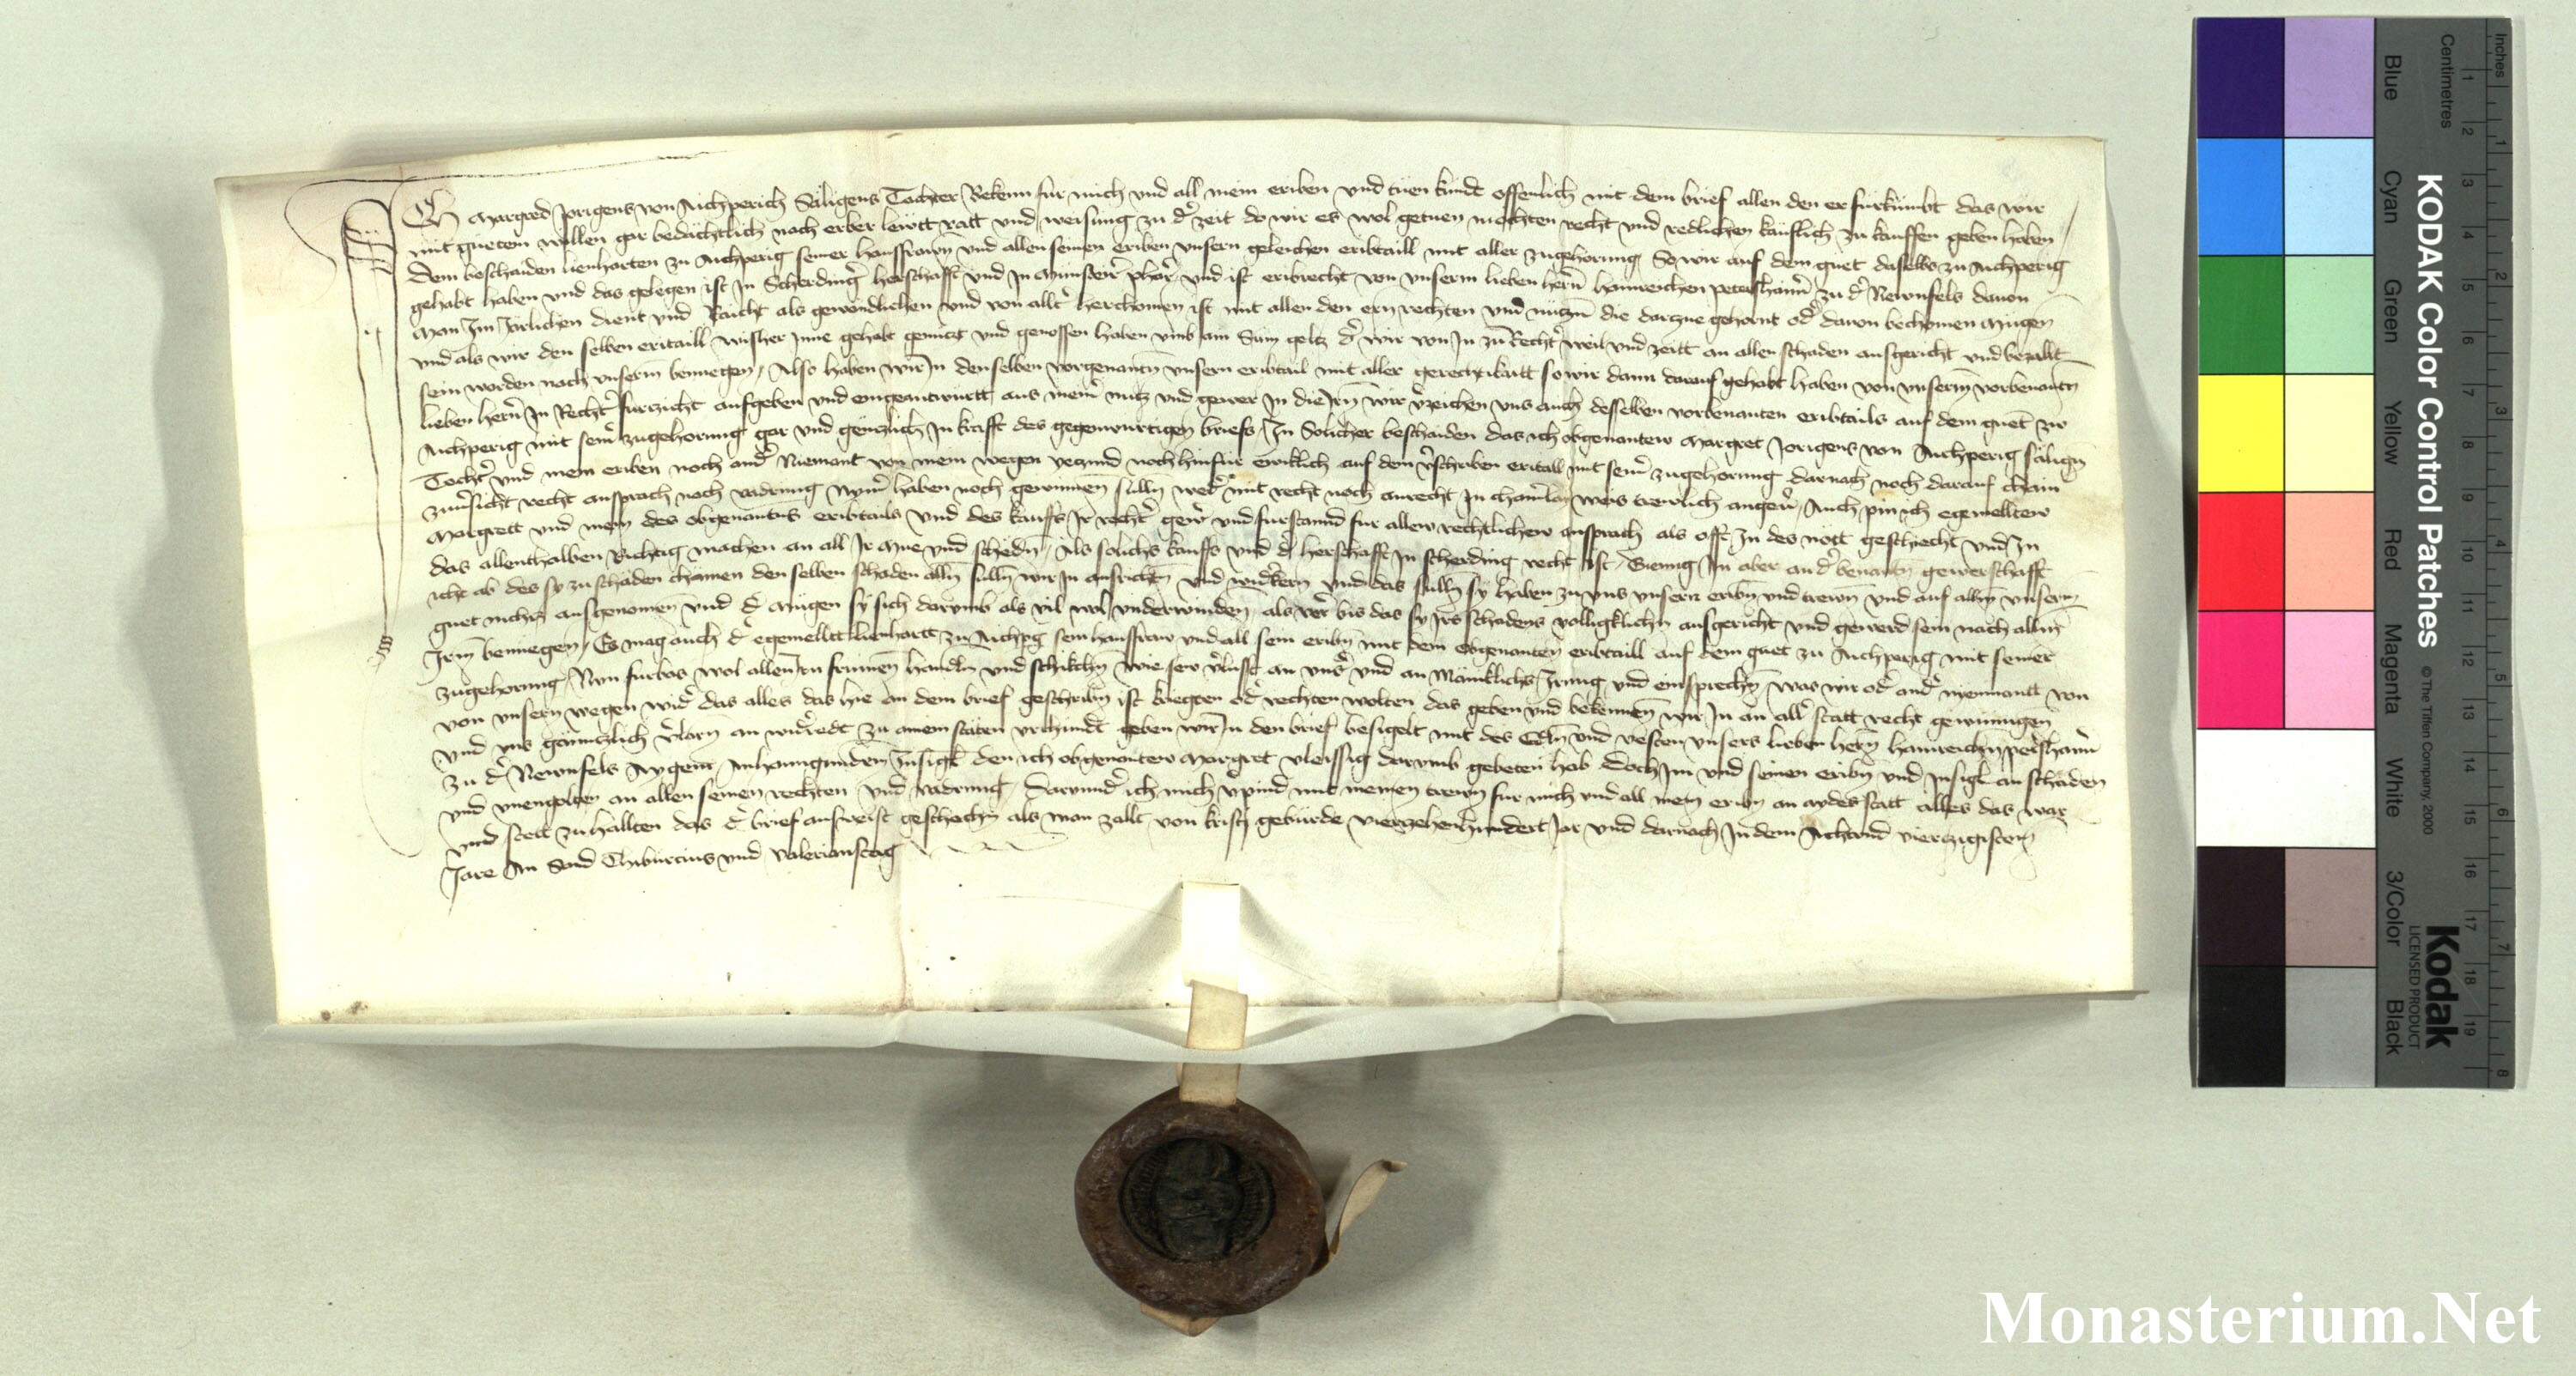 Ich Margred Jorigens von Aichperich Säligens Tochter Bekenn für mich und all mein eriben und tuen kundt offenlich mit dem brief allen den er fürkumbt das wir
mit guetem willen gar bedächtlich nach erber lewtt ratt und weisung zu d' zeit do wir es wol getuen mochten recht und redlichen käuflich zu kauffen geben haben
dem beschaiden lienharten zu Aichperig seiner hausfrawn und allen seinen eriben unsern geleichen eribtaill mit aller zugehorung So wir auf dem guet daselbs zu Aichperig
gehabt haben und das gelegen ist in Scherding' herschafft und in Munster' phar' und ist eribrecht von unserm lieben hern hainreichen petershaim' zu d' Newnfels dauon
man im Järlichen dient und Raicht als gewondlichen und von allt' herchomen ist mit allen den ern rechten und nützn die darzue gehornt od' dauon bechomen mügen
und als wir den selben eritaill wisher inne gehabt genützt und genossen haben umb ain Sum geltz d' wir von In zu Recht' weil und zeitt an allen schaden ausgericht und bezallt
sein worden nach unserm benuegen Also haben wir In denselben vorgenantn unsern eribtail mit aller gerechtikaitt so wir dann darauf gehabt haben von unserm vorbenantn
lieben hern In Recht' furzicht aufgeben und eingeantwurtt aus meiner nutz und gewer in die Irn wir v'zeichen uns auch desselben vorbenanten eribtails auf dem guet zw
Aichperig mit sein' zugehorung gar und gentzlich In krafft des gegenwurtigen briefs In Solicher beschaiden das ich obgenantew Margret Jorigens von Aichperig sälign
Tocht' und mein eriben noch and' Niemant von mein wegen yetzund noch hinfür ewiklich auf dem v'schriben eritaill mit sein' zugehorung darnach noch darauf chain
zuv'sicht recht ansprach noch vadrung nym' haben noch gewinnen sulln wed' mit recht noch anrecht In chain'lay weis trewlich angeu'
Margrett und mein des obgenantns eribtails und des kauffs Ir recht' gew' und furstannd fur allew rechtlichew ansprach als offt In des nott geschiecht und In
das allenthalben Richtig machen an all Ir mue und schedn Als solichs kauffs und d' herschafft In scherding recht ist Gieng In aber an d' benantn gewerschafft
icht ab des sy zu schäden chämen den selben schaden alln sulln wir In ausrichtn und widkern und das sulln sy haben zu uns unsern eribn und trewn und auf allm unserm
guet nichts ausgenomen und d' mügen sy sich darumb als vil wol underwinden als ver' bis das sy Irs schadens volligklichn ausgericht und gewerd sein nach allm
Irm benuegen Es mag auch d' egemelltt lienhartt zu Aichpg sein hausfraw und all sein eribn mit dem obgenanten eribtaill auf dem guet zu Aichperig mit seiner
zugehorung Nun furbas wol allen Irn frumen handln und schikchn wie sew v'lusst an uns' und an Mäniklichs Irrung und einsprechn Was wir od' and' nyemantt von
von unsern wegen wid' das alles das hie an dem brief geschribn ist kriegten od' rechten wolten das geben und bekennen wir In an all' statt recht gewunnigen
und uns gänntzlich v'lorn an wid'redt Zu ainem staten urchundt geben wir In den brief besigelt mit des Edln und vesten unsers lieben hern hainreichn petershaim'
zu d' Newnfels Aygem Anhanngunden Insigl den ich obgenantew Margret vleissig darumb gebeten hab doch Im und seinen eribn und Insigl an schaden
und unengolten an allen seinen rechten und vadrung darund' ich mich v'pind mit meinen trewn fur mich und all mein eribn an aydes statt alles das war
und stett zu hallten das d' brief ausweist geschechn als man zallt von kristj gebürde vierzehenhundert Jar und darnach In dem Achtund vierzigisten
Jare An Sand Thiburcius und Valerianstag
KODAK Color Control Patches
© The Tiffen Company, 2000
Kodak
LICENSED PRODUCT
Inches 1 2 3 4 5 6 7 8
Centimetres 1 2 3 4 5 6 7 8 9 10 11 12 13 14 15 16 17 18 19
Blue Cyan Green Yellow Red Magenta White 3/Color Black
Monasterium.Net